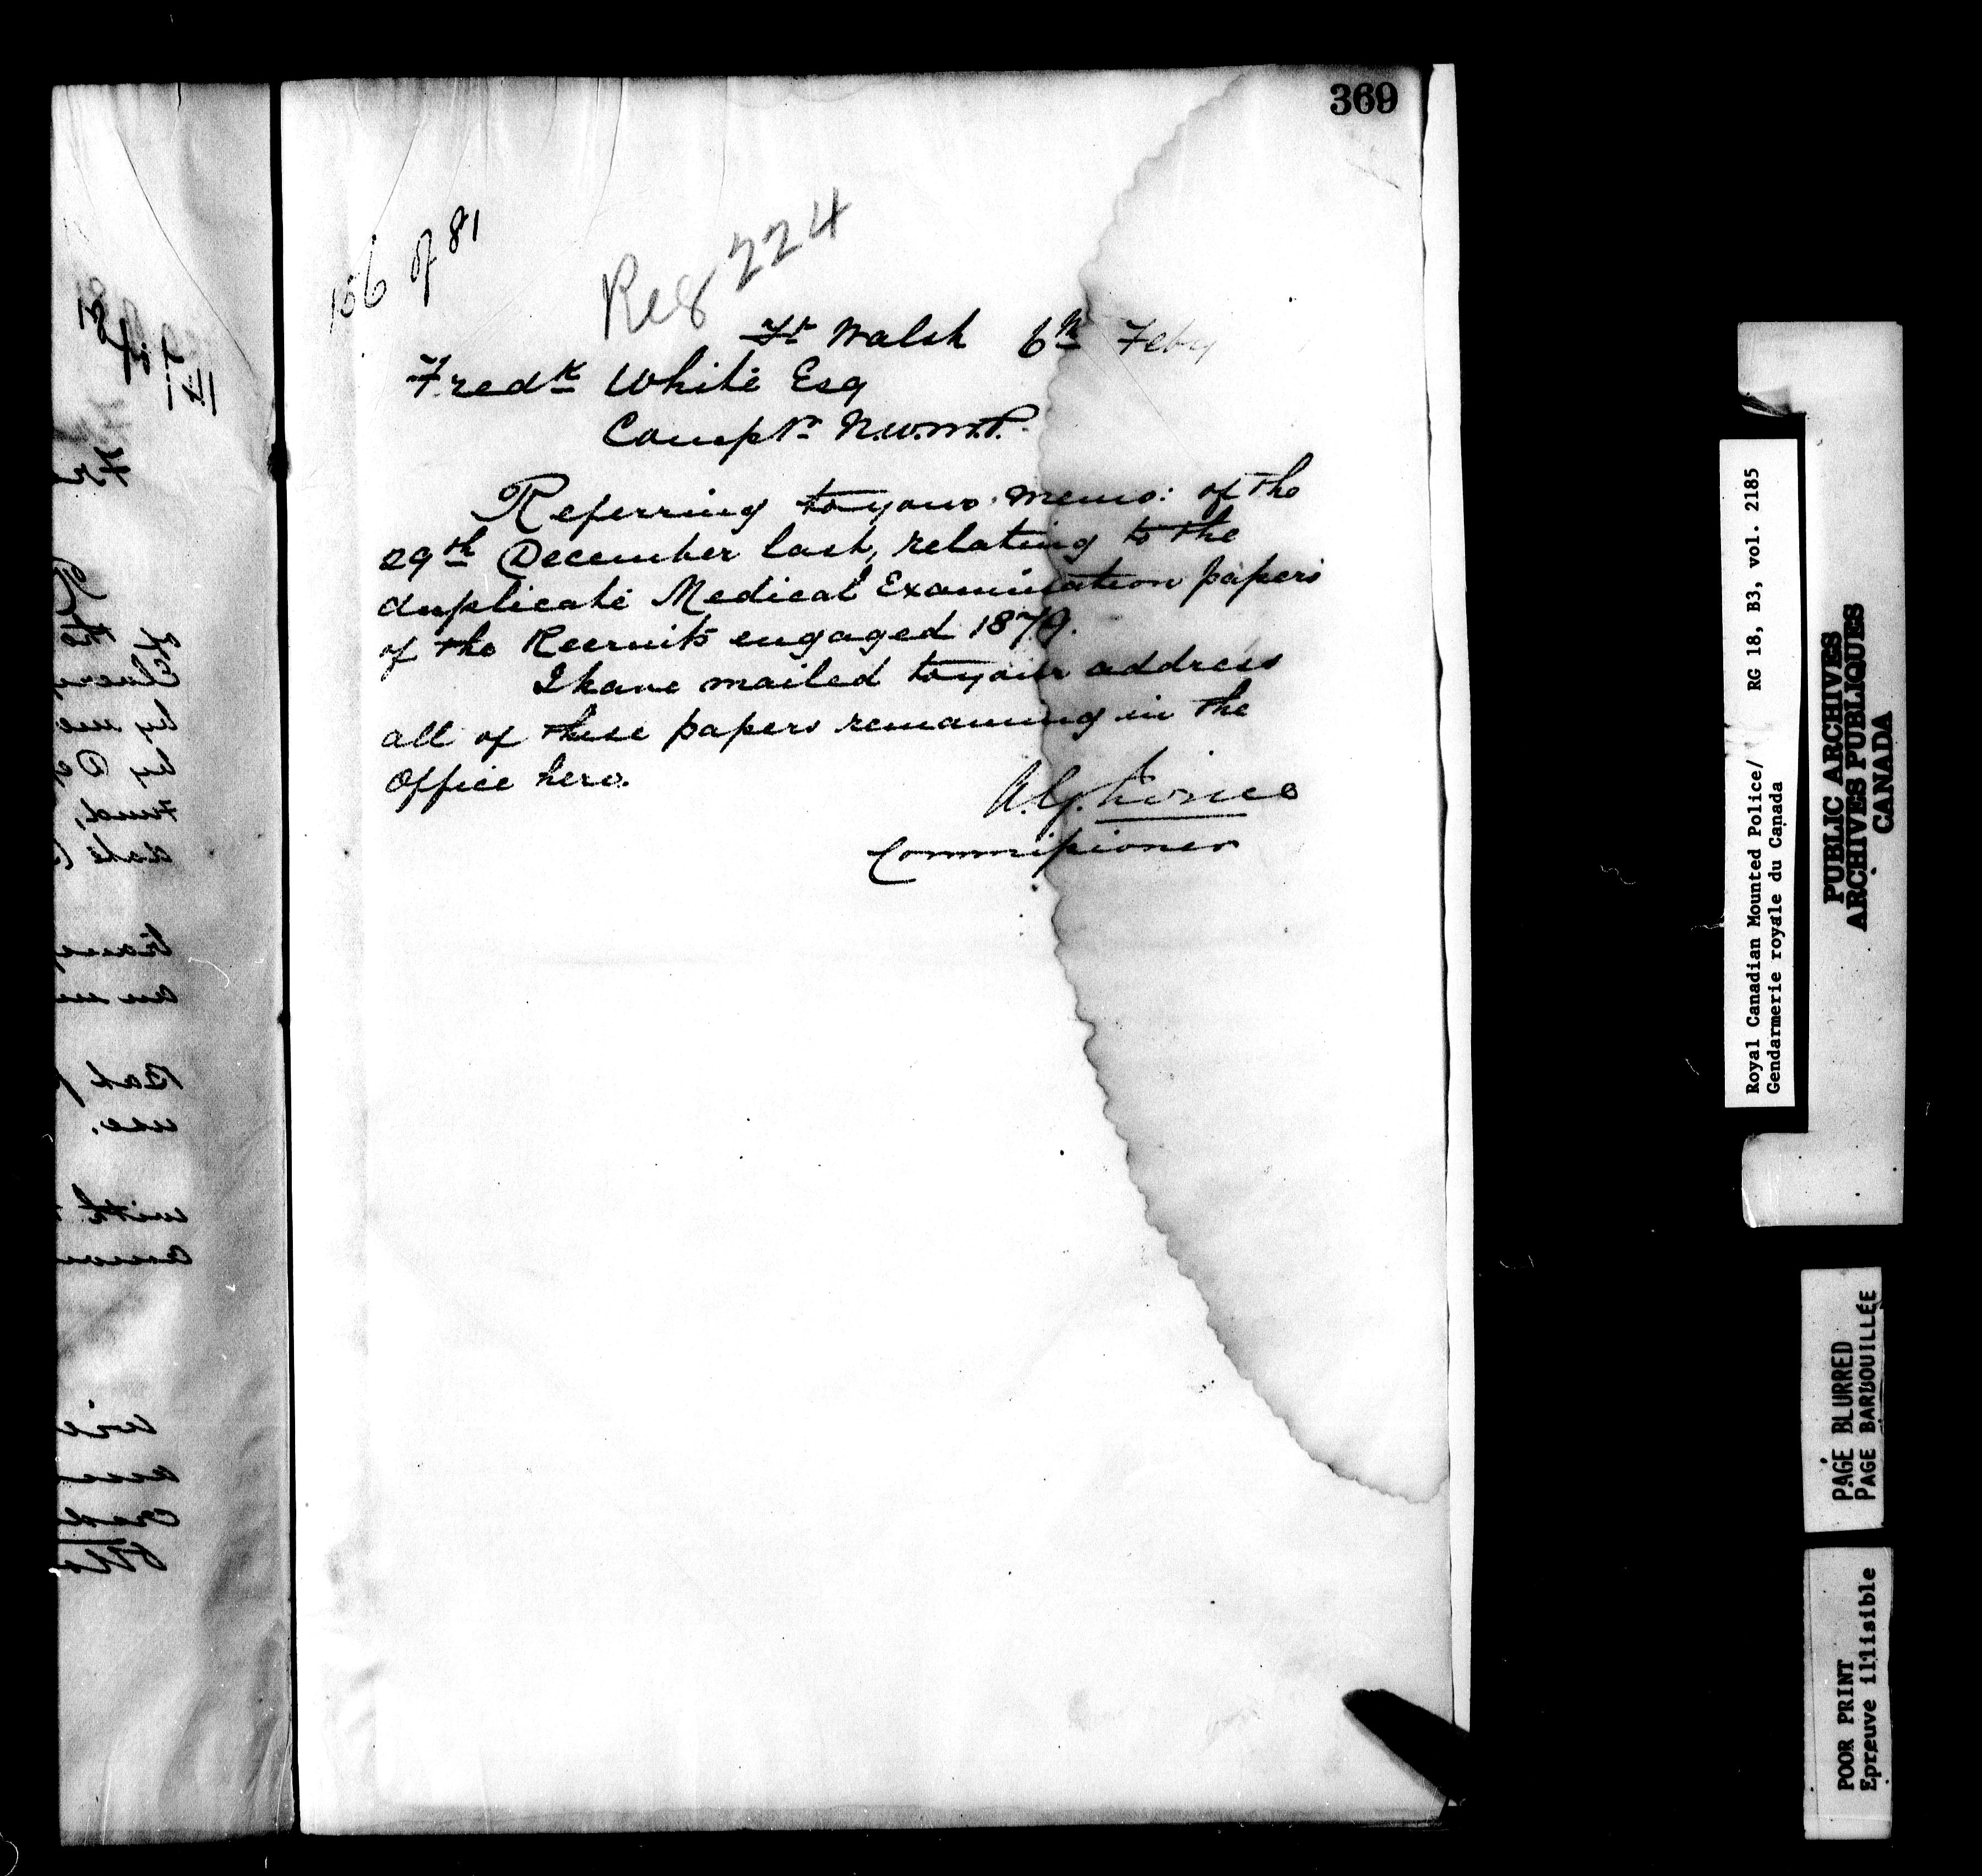 369
156 of 81
Reg 224
Ft Walsh 6th Feby
Fredk White Esq
Comptr N.W.M.P.
Referring to your memo: of the
29th December last, relating to the
duplicate Medical Examination papers
of the Recruits engaged 1879.
I have mailed to your address
all of these papers remaining in the
Office here.
A.G. Irvine
Commissioner
Royal Canadian Mounted Police/ RG 18, B3, vol. 2185
Gendarmerie royale du Canada
PUBLIC ARCHIVES
ARCHIVES PUBLIQUES
CANADA
PAGE BLURRED
PAGE BARBOUILLÉE
POOR PRINT
Epreuve illisible